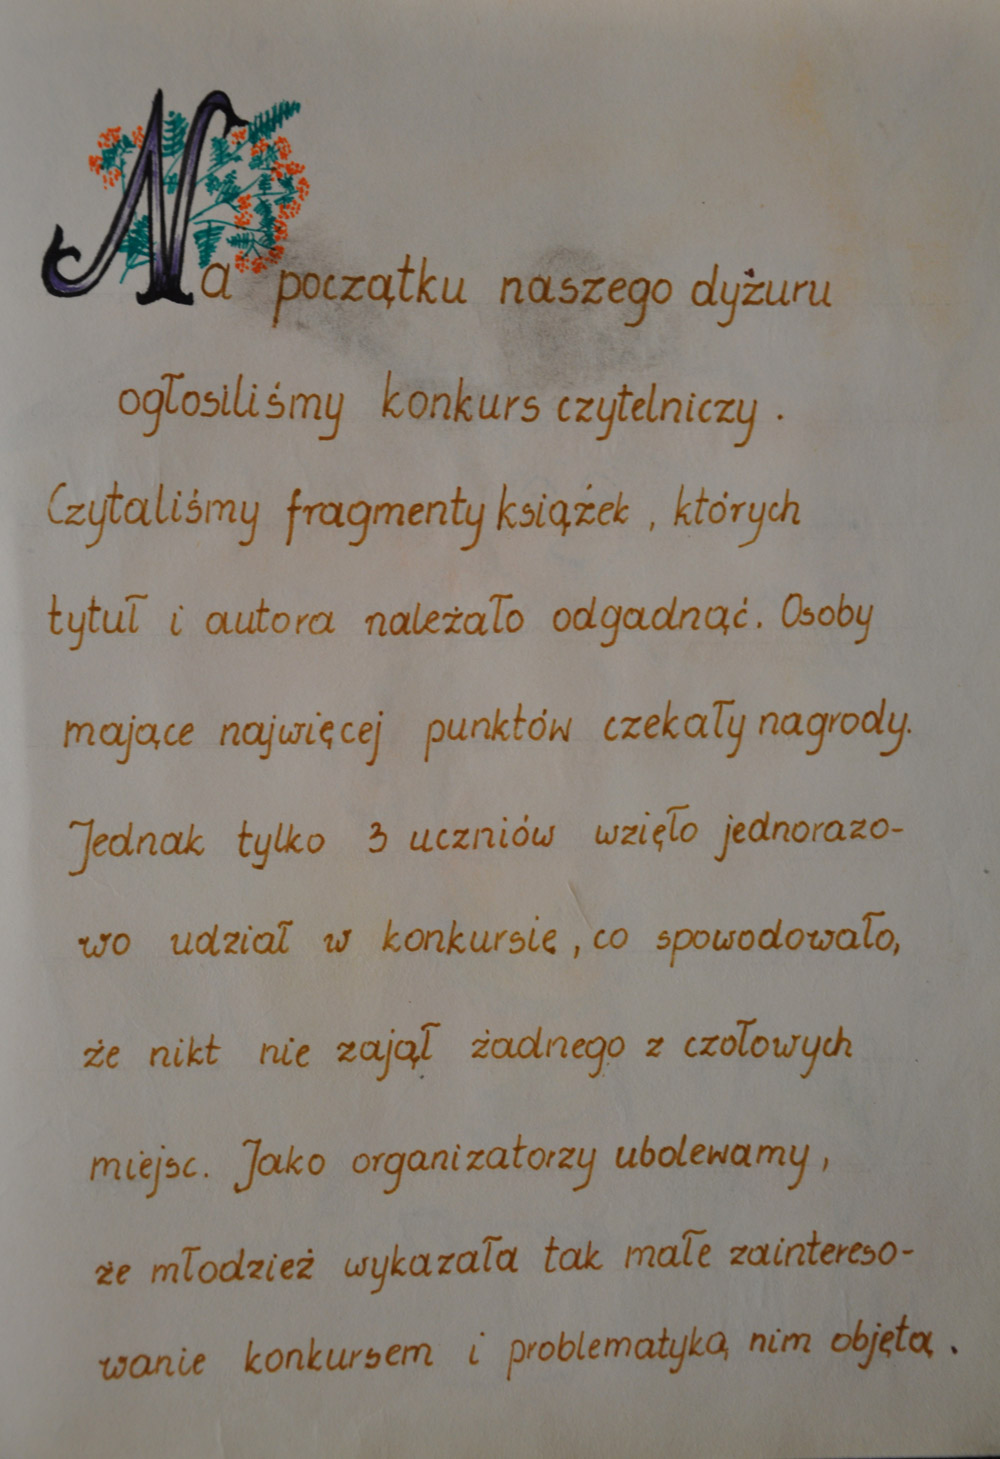 Na początku naszego dyżuru
ogłosiliśmy konkurs czytelniczy.
Czytaliśmy fragmenty książek, których
tytuł i autora należało odgadnąć. Osoby
mające najwięcej punktów czekały nagrody.
Jednak tylko 3 uczniów wzięło jednorazo-
wo udział w konkursie, co spowodowało,
że nikt nie zajął żadnego z czołowych
miejsc. Jako organizatorzy ubolewamy,
że młodzież wykazała tak małe zaintereso-
wanie konkursem i problematyką nim objętą.